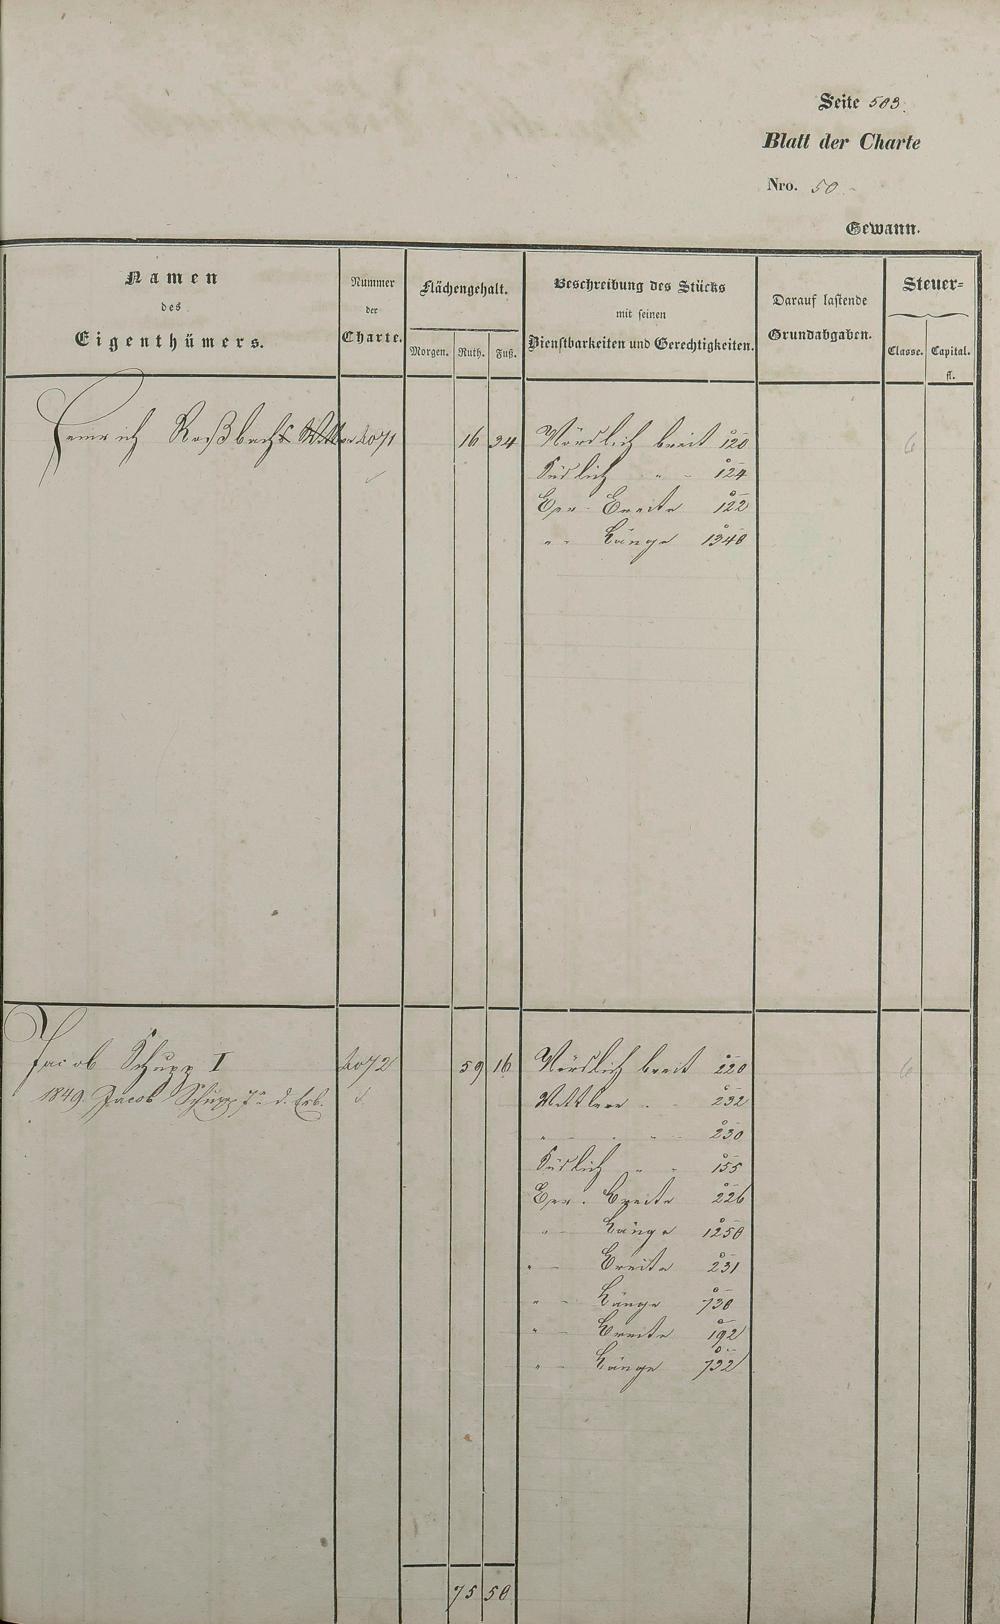 Seite 503.
Blatt der Charte
Nro. 50
Gewann.
Namen des Eigenthümers.
Nummer der Charte.
Flächengehalt.
Morgen. Ruth. Fuß.
Beschreibung des Stücks mit seinen Dienstbarkeiten und Gerechtigkeiten.
Darauf lastende Grundabgaben.
Steuer=
Classe. Capital. fl.
Heinrich Roßbachs 2071 16 34 Nördlich breit 120 6
Südlich " - 124
Epr. Breite 122
" - Länge 1340
Jacob Schupp I 2072 59 16 Nördlich breit 220 6
1849 Jacob Schupp 7r d. Erb. Mittlere - 232
" - " - 230
Südlich " - 155
Epr. Breite 226
" - Länge 1250
" - Breite 231
" - Länge 730
" - Breite 192
" - Länge 732
75 50